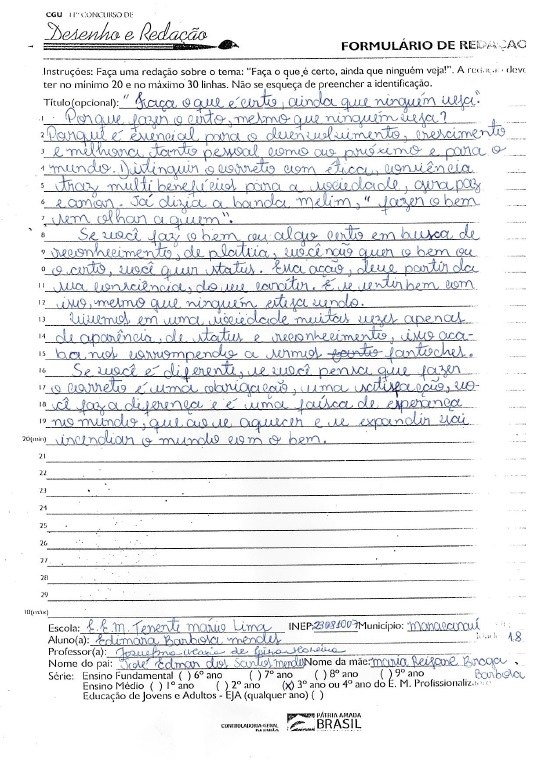 CGU 11º CONCURSO DE
Desenho e Redação
FORMULÁRIO DE REDAÇÃO
Instruções: Faça uma redação sobre o tema: "Faça o que é certo, ainda que ninguém veja!". A redação deve
ter no mínimo 20 e no máximo 30 linhas. Não se esqueça de preencher a identificação.
Título(opcional): "Faça o que é certo, ainda que ninguém veja."
1 Porque fazer o certo, mesmo que ninguém veja?
2 Porque é esencial para o desenvolvimento, crescimento
3 e melhora, tanto pessoal como ao próximo e para o
4 mundo. Distinguir o correto com ética, conciência
5 traz multi benefícios para a sociedade, gera paz
6 e amor. Já dizia a banda melim, "fazer o bem
7 sem olhar a quem".
8 Se você faz o bem ou algo certo em busca de
9 reconhecimento, de platéia, você não quer o bem ou
0 o certo, você quer status. Essa ação, deve partir da
11 sua consciência, do seu caráter. E se sentir bem com
12 isso, mesmo que ninguém esteja vendo.
13 Vivemos em uma sociedade muitas vezes apenas
14 de aparência, de status e reconhecimento, isso aca-
15 ba nos corrompendo a sermos fantoches.
16 Se você é diferente, se você pensa que fazer
17 o correto é uma obrigação, uma satisfação, vo-
18 cê faz a diferença e é uma faísca de esperança
19 no mundo, que ao se aquecer e se expandir vai
20(mín) incendiar o mundo com o bem.
21
22
23
24
25
26
27
28
29
30(máx)
Escola: E.E.M. Tenente mário Lima INEP: 23081007 Município: Maracanaú
Aluno(a): Edimara Barbosa mendes 18
Professor(a): Josuefma
Nome do pai: José Edmar dos Santos mendes Nome da mãe: maria Braga Barbosa
Série: Ensino Fundamental ( ) 6º ano ( ) 7º ano ( ) 8º ano ( ) 9º ano
Ensino Médio ( ) 1º ano ( ) 2º ano (x) 3º ano ou 4º ano do E. M. Profissionaliz.
Educação de Jovens e Adultos - EJA (qualquer ano) ( )
CONTROLADORIA-GERAL DA UNIÃO
PÁTRIA AMADA
BRASIL